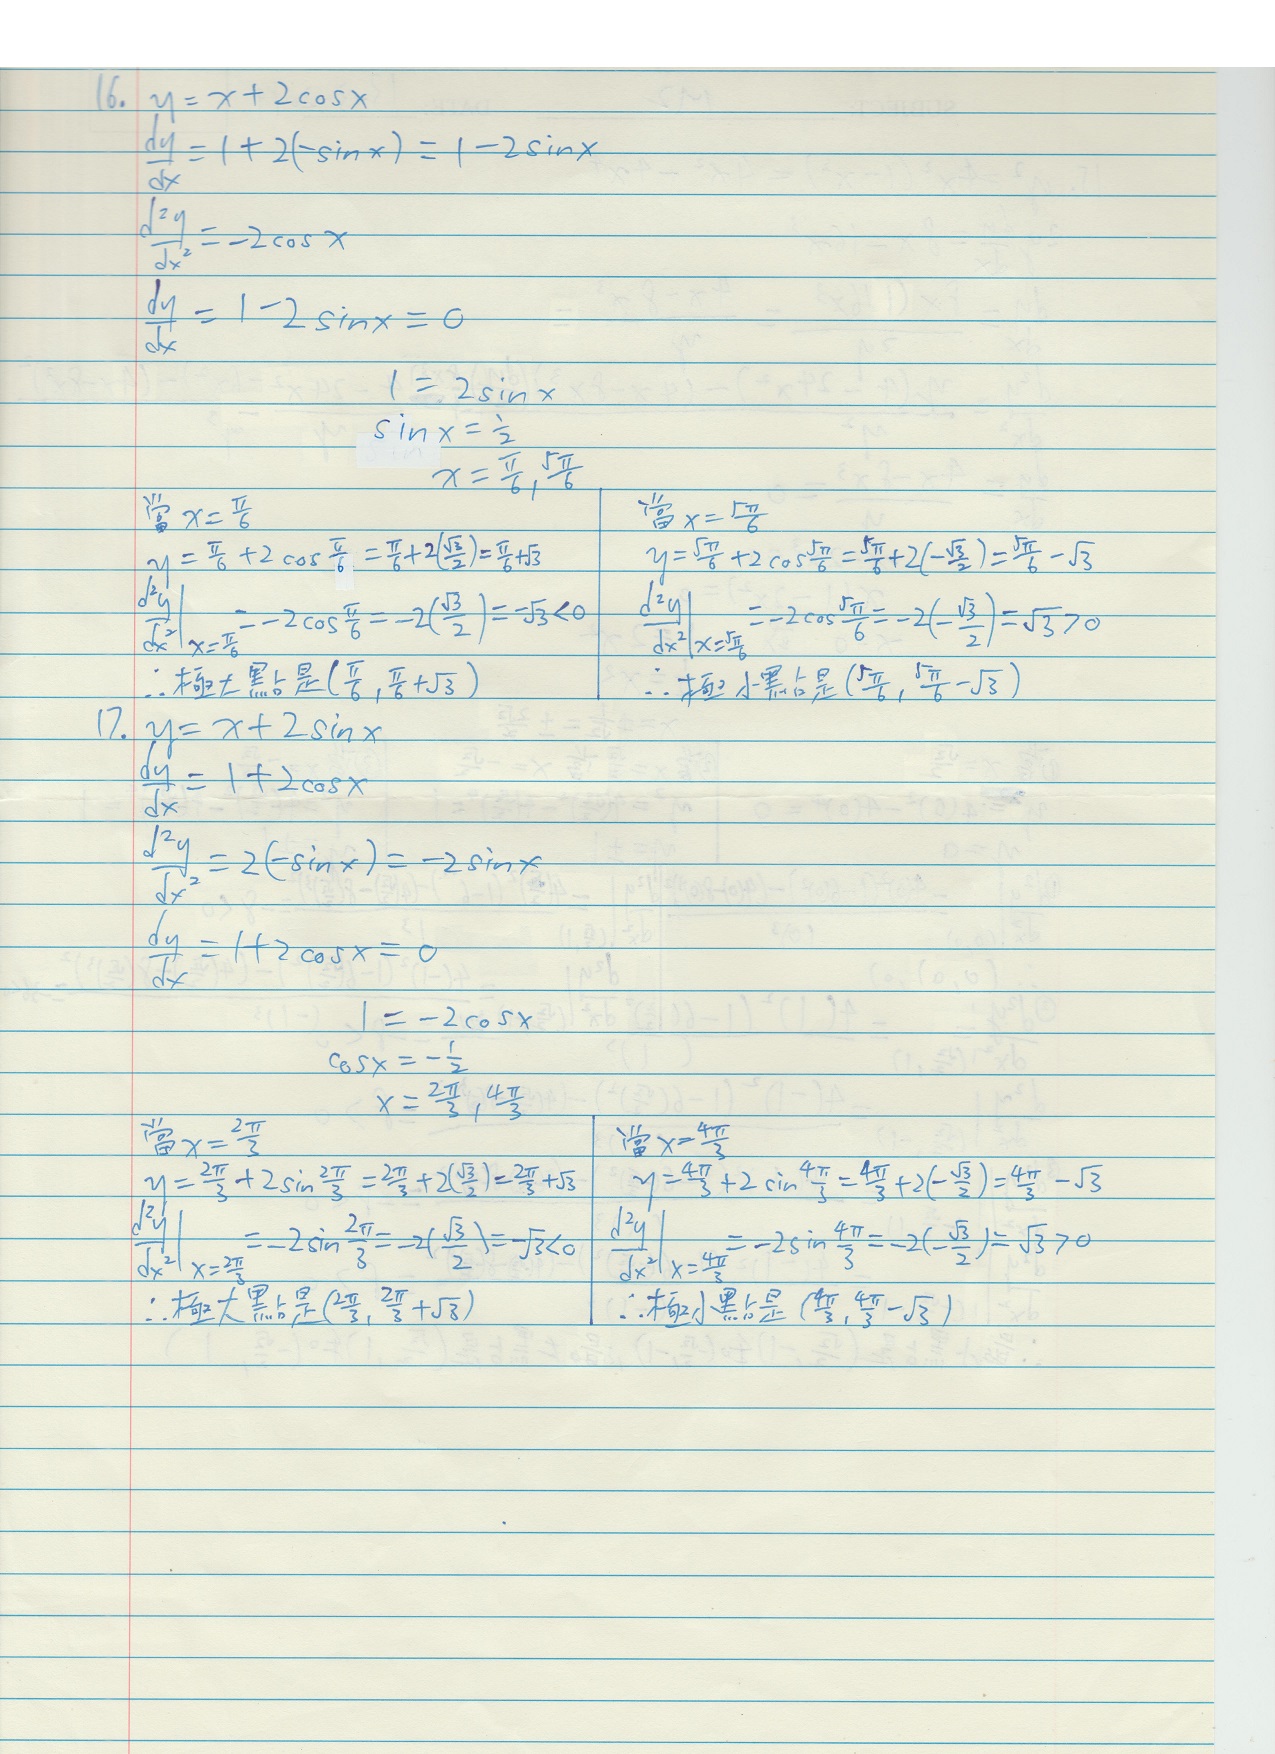 16. y = x + 2cosx
dy/dx = 1 + 2(-sinx) = 1 - 2sinx
d²y/dx² = -2cosx
dy/dx = 1 - 2sinx = 0
1 = 2sinx
sinx = 1/2
x = π/6, 5π/6
當 x = π/6
y = π/6 + 2cos π/6 = π/6 + 2(√3/2) = π/6 + √3
d²y/dx²|x=π/6 = -2cos π/6 = -2(√3/2) = -√3 < 0
∴極大點是(π/6, π/6+√3)
當 x = 5π/6
y = 5π/6 + 2cos 5π/6 = 5π/6 + 2(-√3/2) = 5π/6 - √3
d²y/dx²|x=5π/6 = -2cos 5π/6 = -2(-√3/2) = √3 > 0
∴極小點是(5π/6, 5π/6-√3)
17. y = x + 2sinx
dy/dx = 1 + 2cosx
d²y/dx² = 2(-sinx) = -2sinx
dy/dx = 1 + 2cosx = 0
1 = -2cosx
cosx = -1/2
x = 2π/3, 4π/3
當 x = 2π/3
y = 2π/3 + 2sin 2π/3 = 2π/3 + 2(√3/2) = 2π/3 + √3
d²y/dx²|x=2π/3 = -2sin 2π/3 = -2(√3/2) = -√3 < 0
∴極大點是(2π/3, 2π/3+√3)
當 x = 4π/3
y = 4π/3 + 2sin 4π/3 = 4π/3 + 2(-√3/2) = 4π/3 - √3
d²y/dx²|x=4π/3 = -2sin 4π/3 = -2(-√3/2) = √3 > 0
∴極小點是(4π/3, 4π/3-√3)